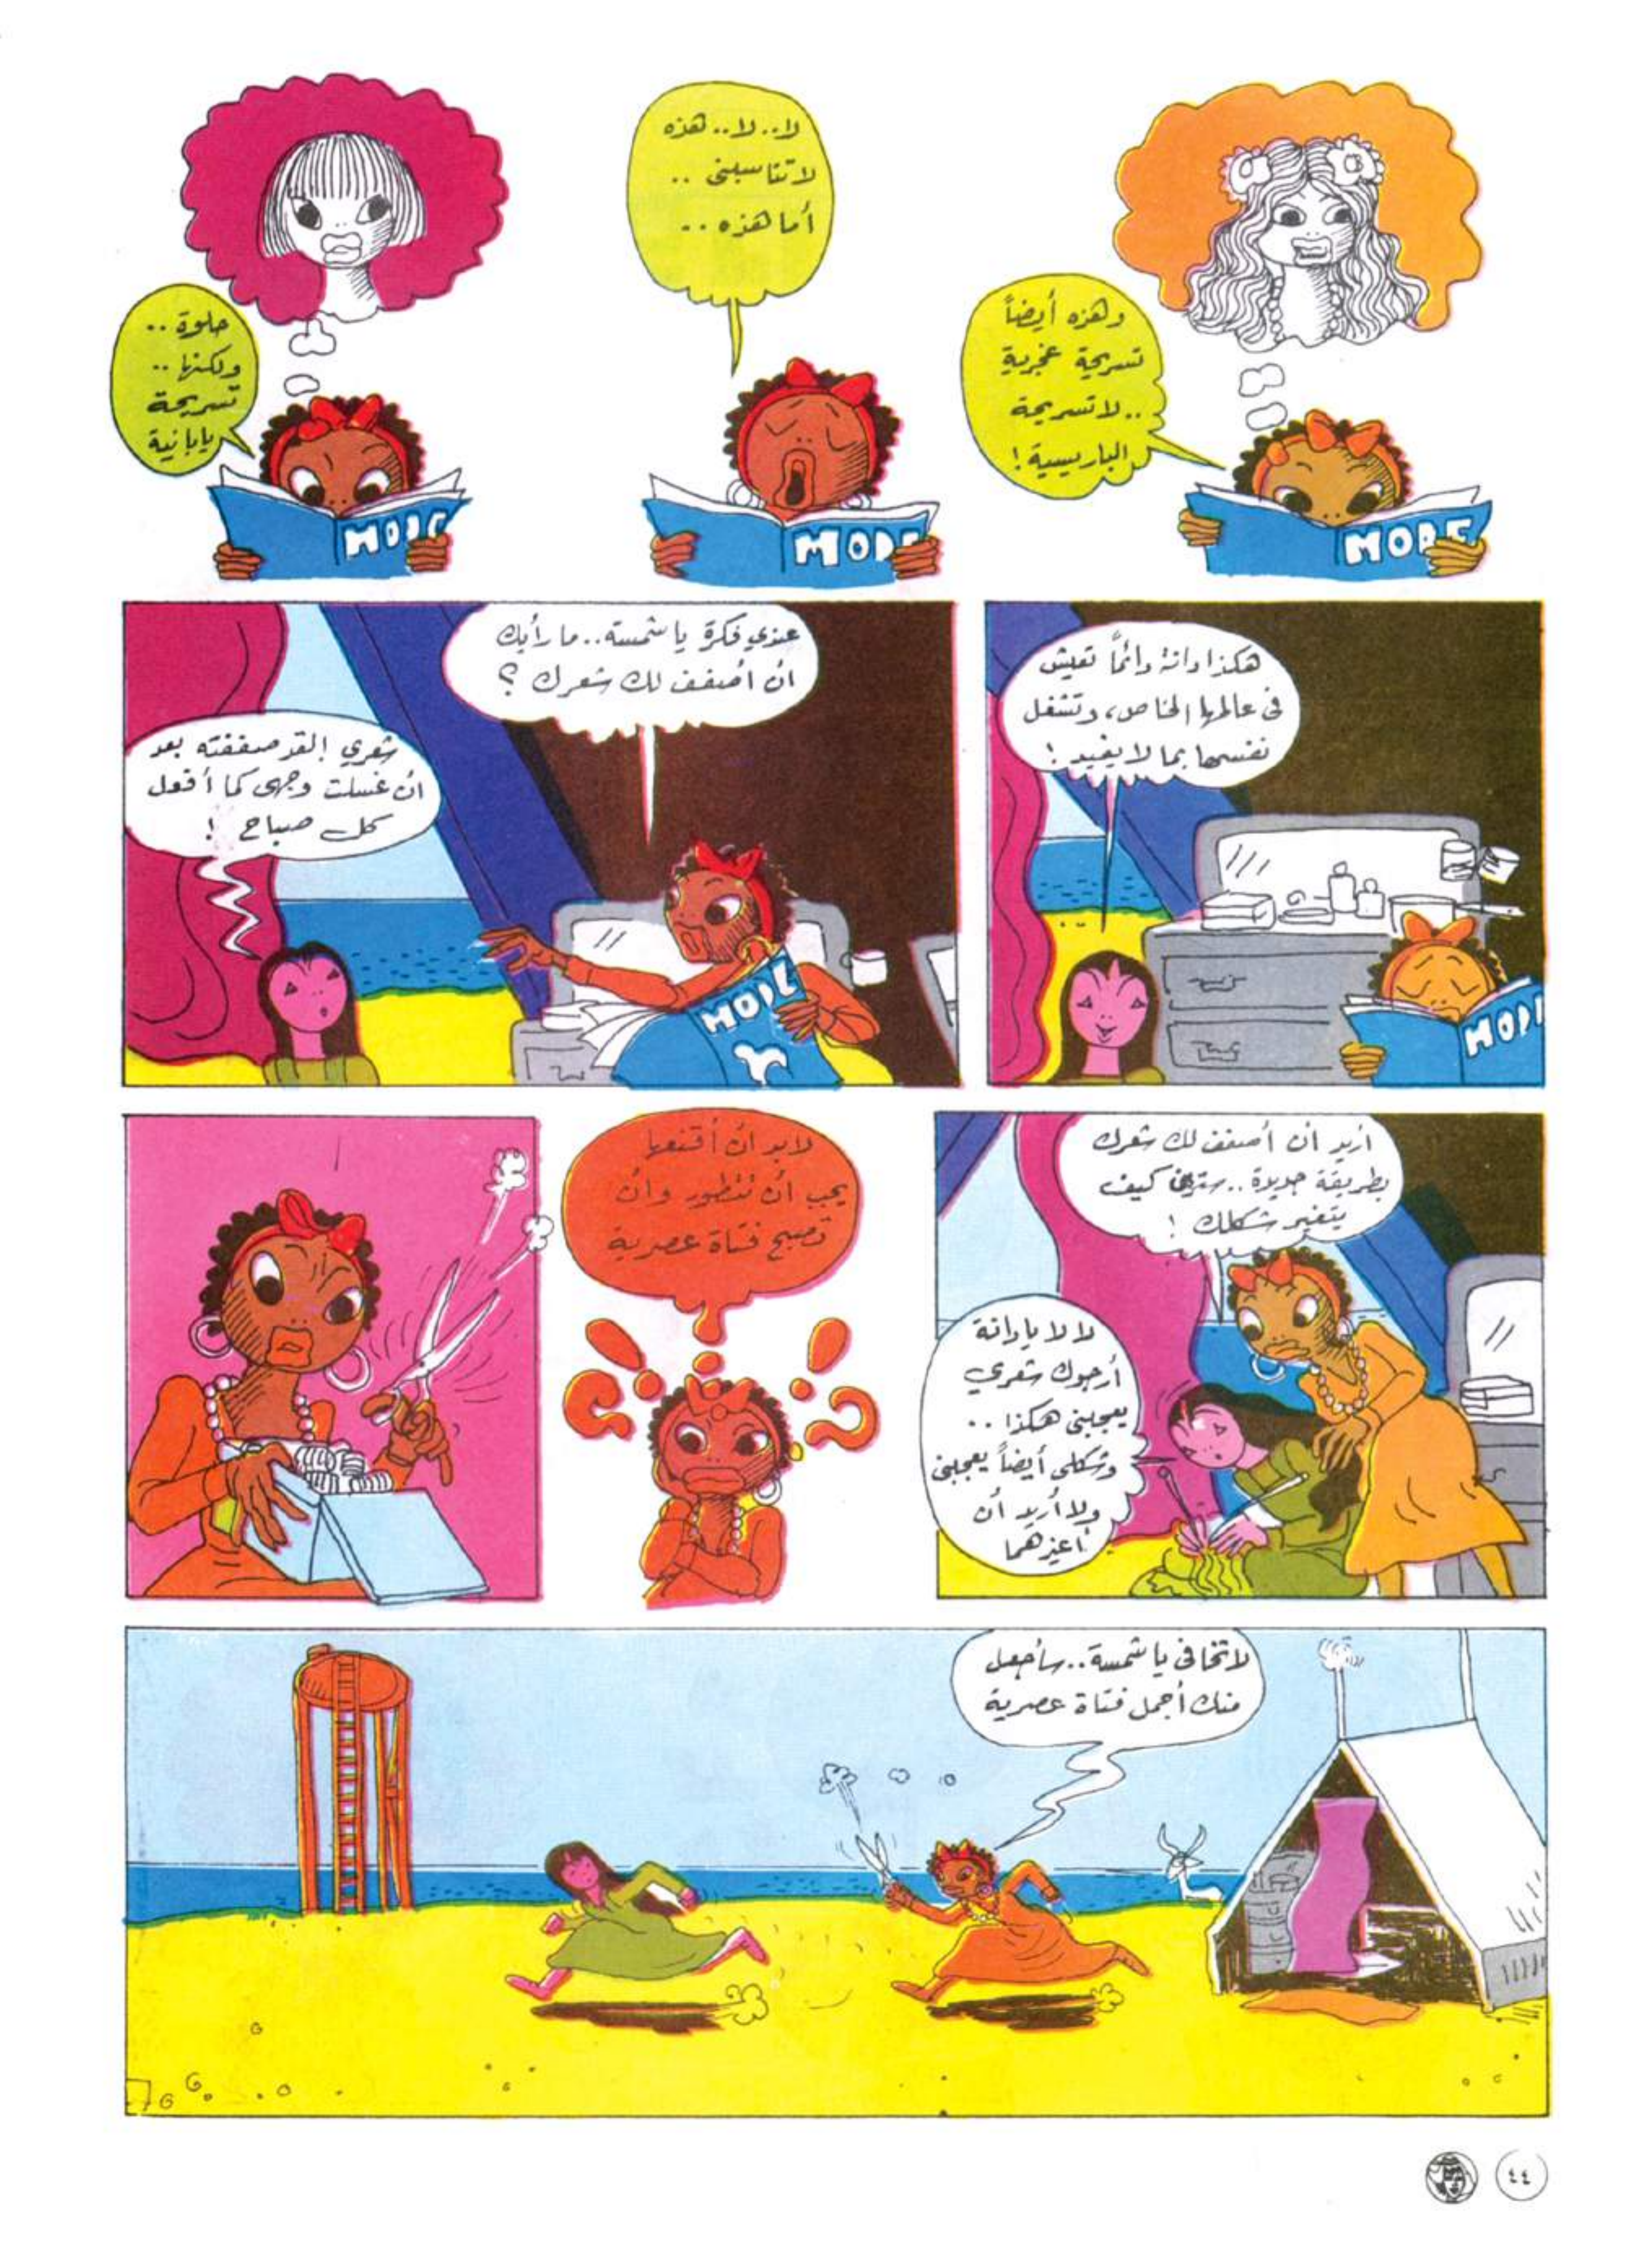 وهذه أيضاً
تسريحة غجرية
..لا تسريحة
الباريسية !
MODE
لا.. لا.. هذه
لا تناسبني ..
أما هذه ..
MODE
حلوة ..
ولكنها ..
تسريحة
يابانية
MODE
هكذا دانة دائماً تعيش
في عالمها الخاص، وتشغل
نفسها بما لا يفيد !
MODE
عندي فكرة يا شمسة.. ما رأيك
ان أصفف لك شعرك ؟
شعري ! لقد صففته بعد
ان غسلت وجهي كما أفعل
كل صباح !
MODE
اريد أن أصفف لك شعرك
بطريقة جديدة.. سترين كيف
يتغير شكلك !
لا لا يا دانة
أرجوك شعري
يعجبني هكذا ..
وشكلي أيضاً يعجبني
ولا أريد أن
لابد ان أقنعها
يجب ان تتطور وان
تصبح فتاة عصرية
لا تخافي يا شمسة.. سأجعل
منك أجمل فتاة عصرية
٤٤